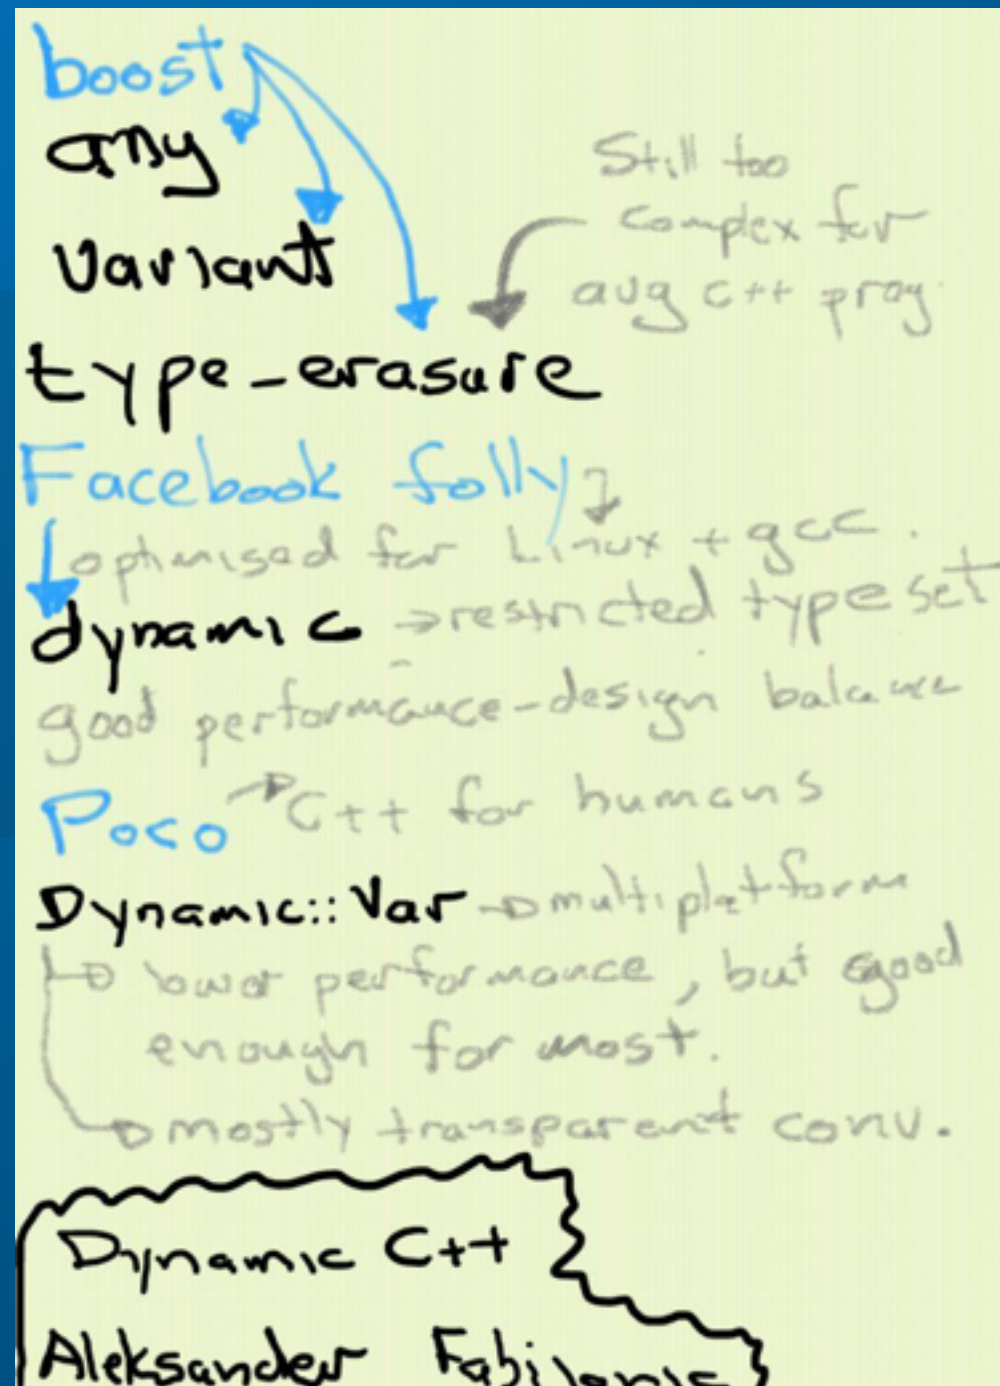 boost
any
variant
Still too
complex for
avg c++ prog.
type-erasure
Facebook folly
optimised for Linux + gcc.
dynamic → restricted type set
good performance-design balance
Poco → C++ for humans
Dynamic::Var → multiplatform
→ lower performance, but good
enough for most.
→ mostly transparent conv.
Dynamic C++
Aleksander